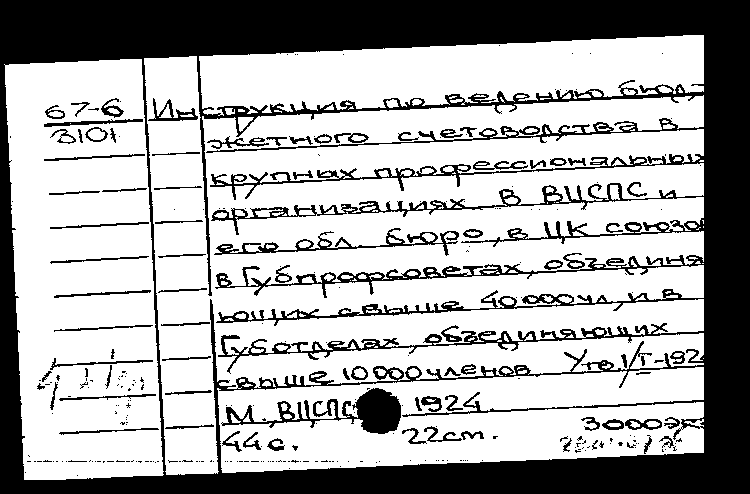 67-6 Инструкция по ведению бюд-
3101 жетного счетоводства в
крупных профессиональных
организациях. В ВЦСПС и
его обл. бюро, в ЦК союзо
в Губпрофсоветах, объединя
ющих свыше 40000 чл, и в
Губотделах, объединяющих
свыше 10000 членов. Утв. 1/I-192
М., ВЦСПС, 1924.
44 с. 22 см. 3000 экз